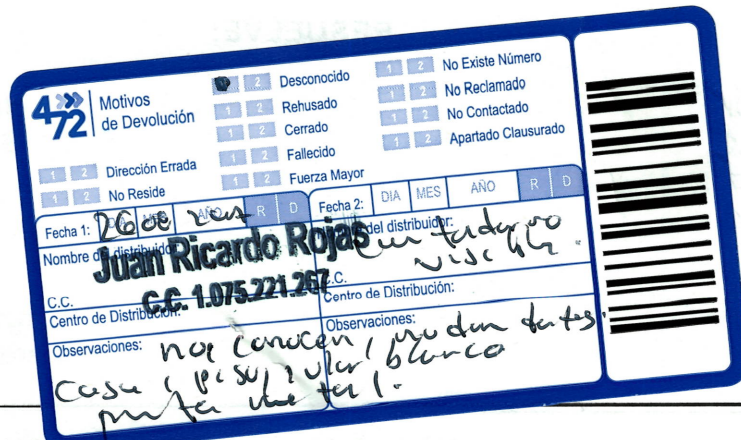 472
Motivos
de Devolución
1 2 Dirección Errada
1 2 No Reside
2 Desconocido
1 2 Rehusado
1 2 Cerrado
1 2 Fallecido
1 2 Fuerza Mayor
1 2 No Existe Número
1 2 No Reclamado
1 2 No Contactado
1 2 Apartado Clausurado
Fecha 1: 26 08 AÑO R D
Fecha 2: DIA MES AÑO R D
Nombre del distribuidor:
Juan Ricardo Rojas
C.C. 1.075.221.267
C.C.
Centro de Distribución:
Observaciones: no conocen, no dan datos
casa 1 piso, color blanco
del distribuidor:
Contador no
visible.
C.C.
Centro de Distribución:
Observaciones: